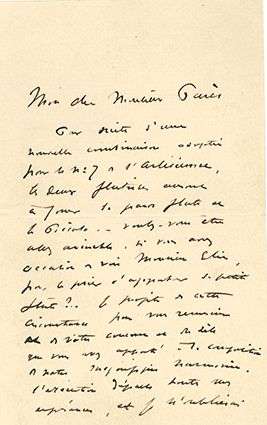 Mon cher Monsieur Parès
Par suite d'une
nouvelle combinaison adoptée
pour le no 7 de l'Arlésienne,
les deux flûtistes auront
à jouer la grande flûte et
le Piccolo... voulez-vous être
assez aimable, si vous avez
occasion de voir Monsieur
pour le prier d'apporter sa petite
flûte?.. Je profite de cette
circonstance pour vous remercier
et de votre concours et du zèle
que vous avez apporté à la composition
de notre harmonie.
L'exécution dépasse toutes mes
espérances, et je n'oublierai